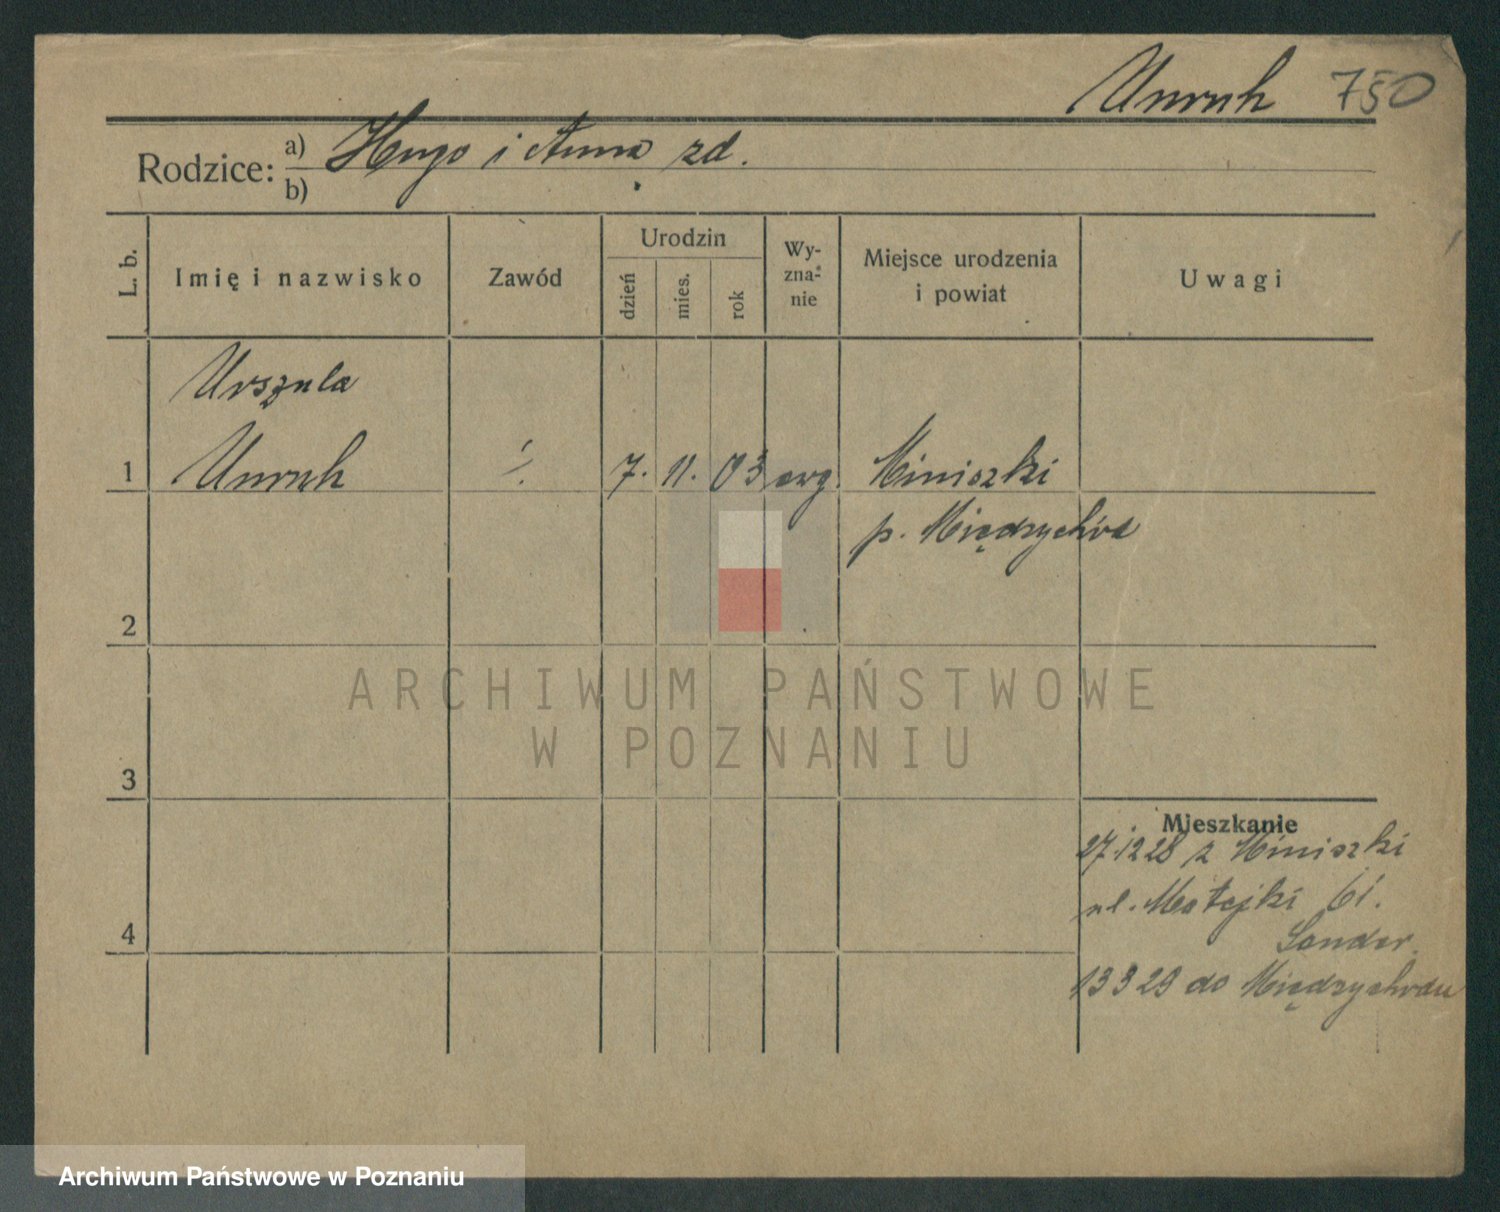 Unruh 750
Rodzice: a) Hugo i Anna zd.
b)
L. b.
Imię i nazwisko
Zawód
Urodzin
dzień
mies.
rok
Wy-
zna-
nie
Miejsce urodzenia
i powiat
Uwagi
Urszula
1 Unruh 7. 11. 03 ewg. Miniszki
p. Międzychód
2
ARCHIWUM PAŃSTWOWE
W POZNANIU
3
Mieszkanie
27.12 28 z Miniszki
ul. Matejki 61.
Sander.
4
13 3 29 do Międzychodu
Archiwum Państwowe w Poznaniu